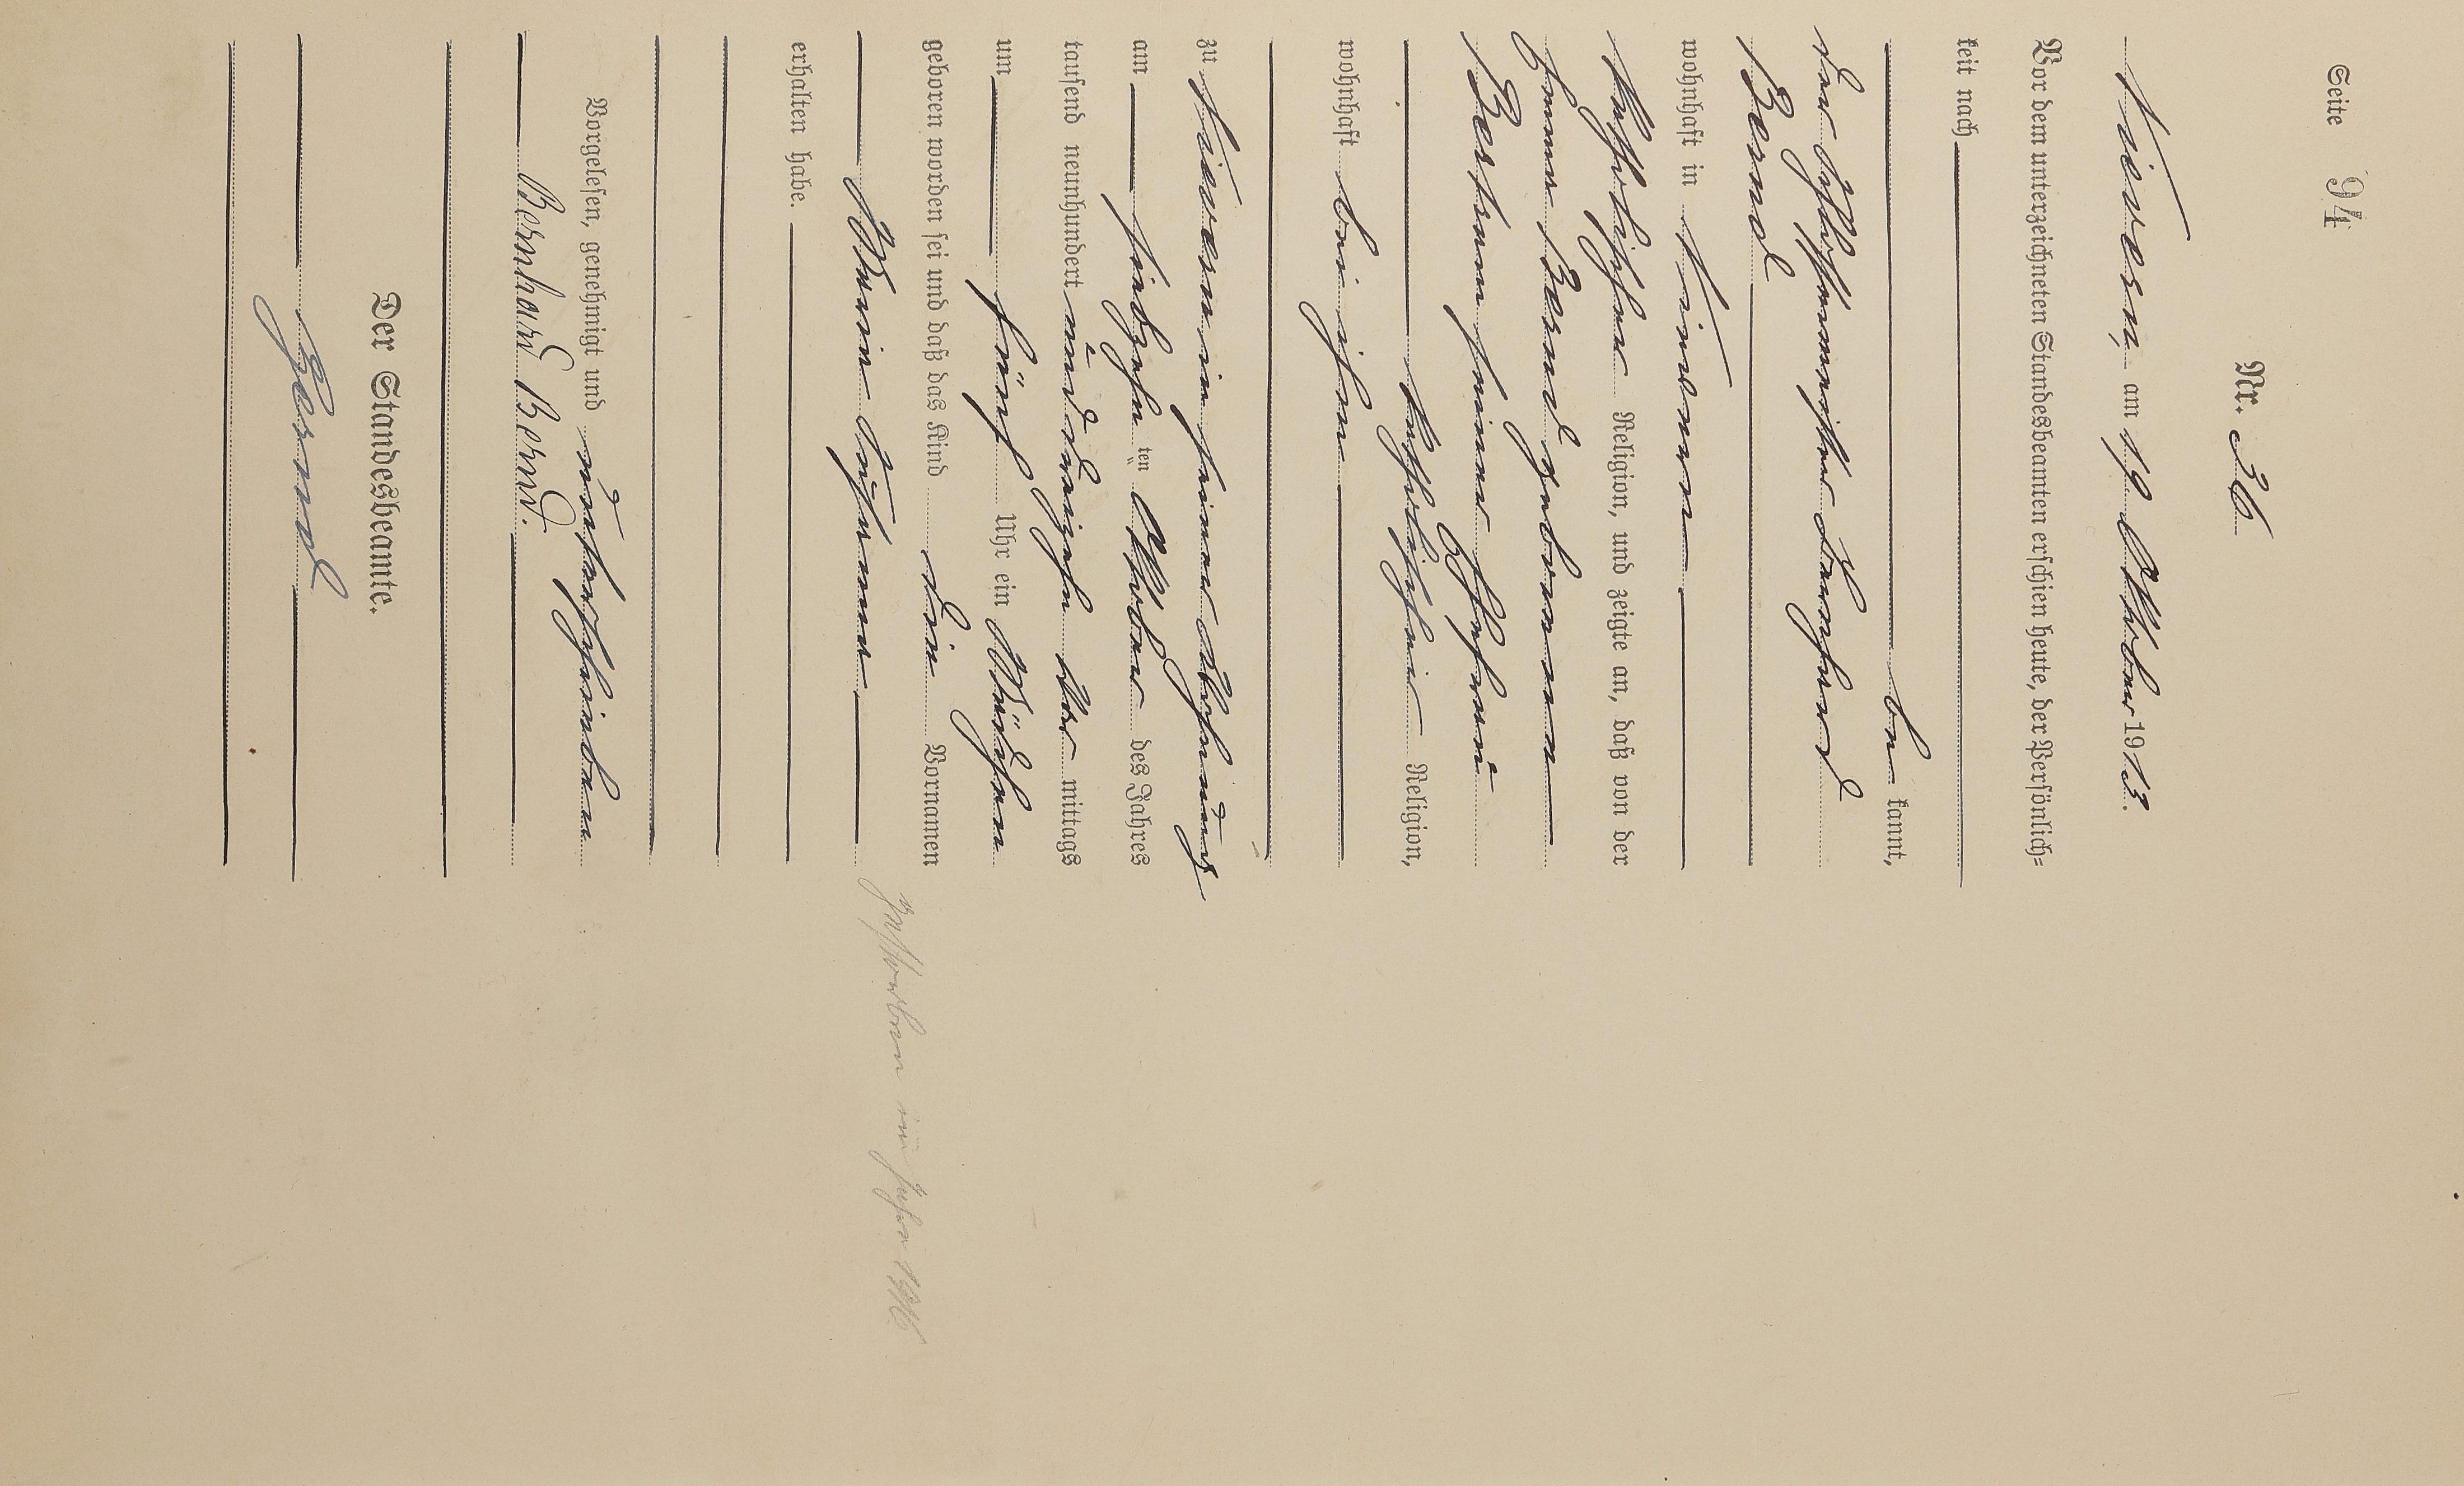 Seite 94
Nr. 36
Nievern, am 19. Oktober 1913.
Vor dem unterzeichneten Standesbeamten erschien heute, der Persönlich=
keit nach
be kannt,
der Bernhard
Bernd
wohnhaft in Nievern
katholischer Religion, und zeigte an, daß von der
Bernd geborenen
Bertram seiner Ehefrau
katholischer Religion,
wohnhaft bei ihm
zu Nievern in seiner Wohnung
am siebzehn ten Oktober des Jahres
tausend neunhundert und dreizehn Vor mittags
um fünf Uhr ein Mädchen
geboren worden sei und daß das Kind die Vornamen
Maria
erhalten habe.
Gestorben im Jahre
Vorgelesen, genehmigt und unterschrieben
Bernhard Bernd.
Der Standesbeamte.